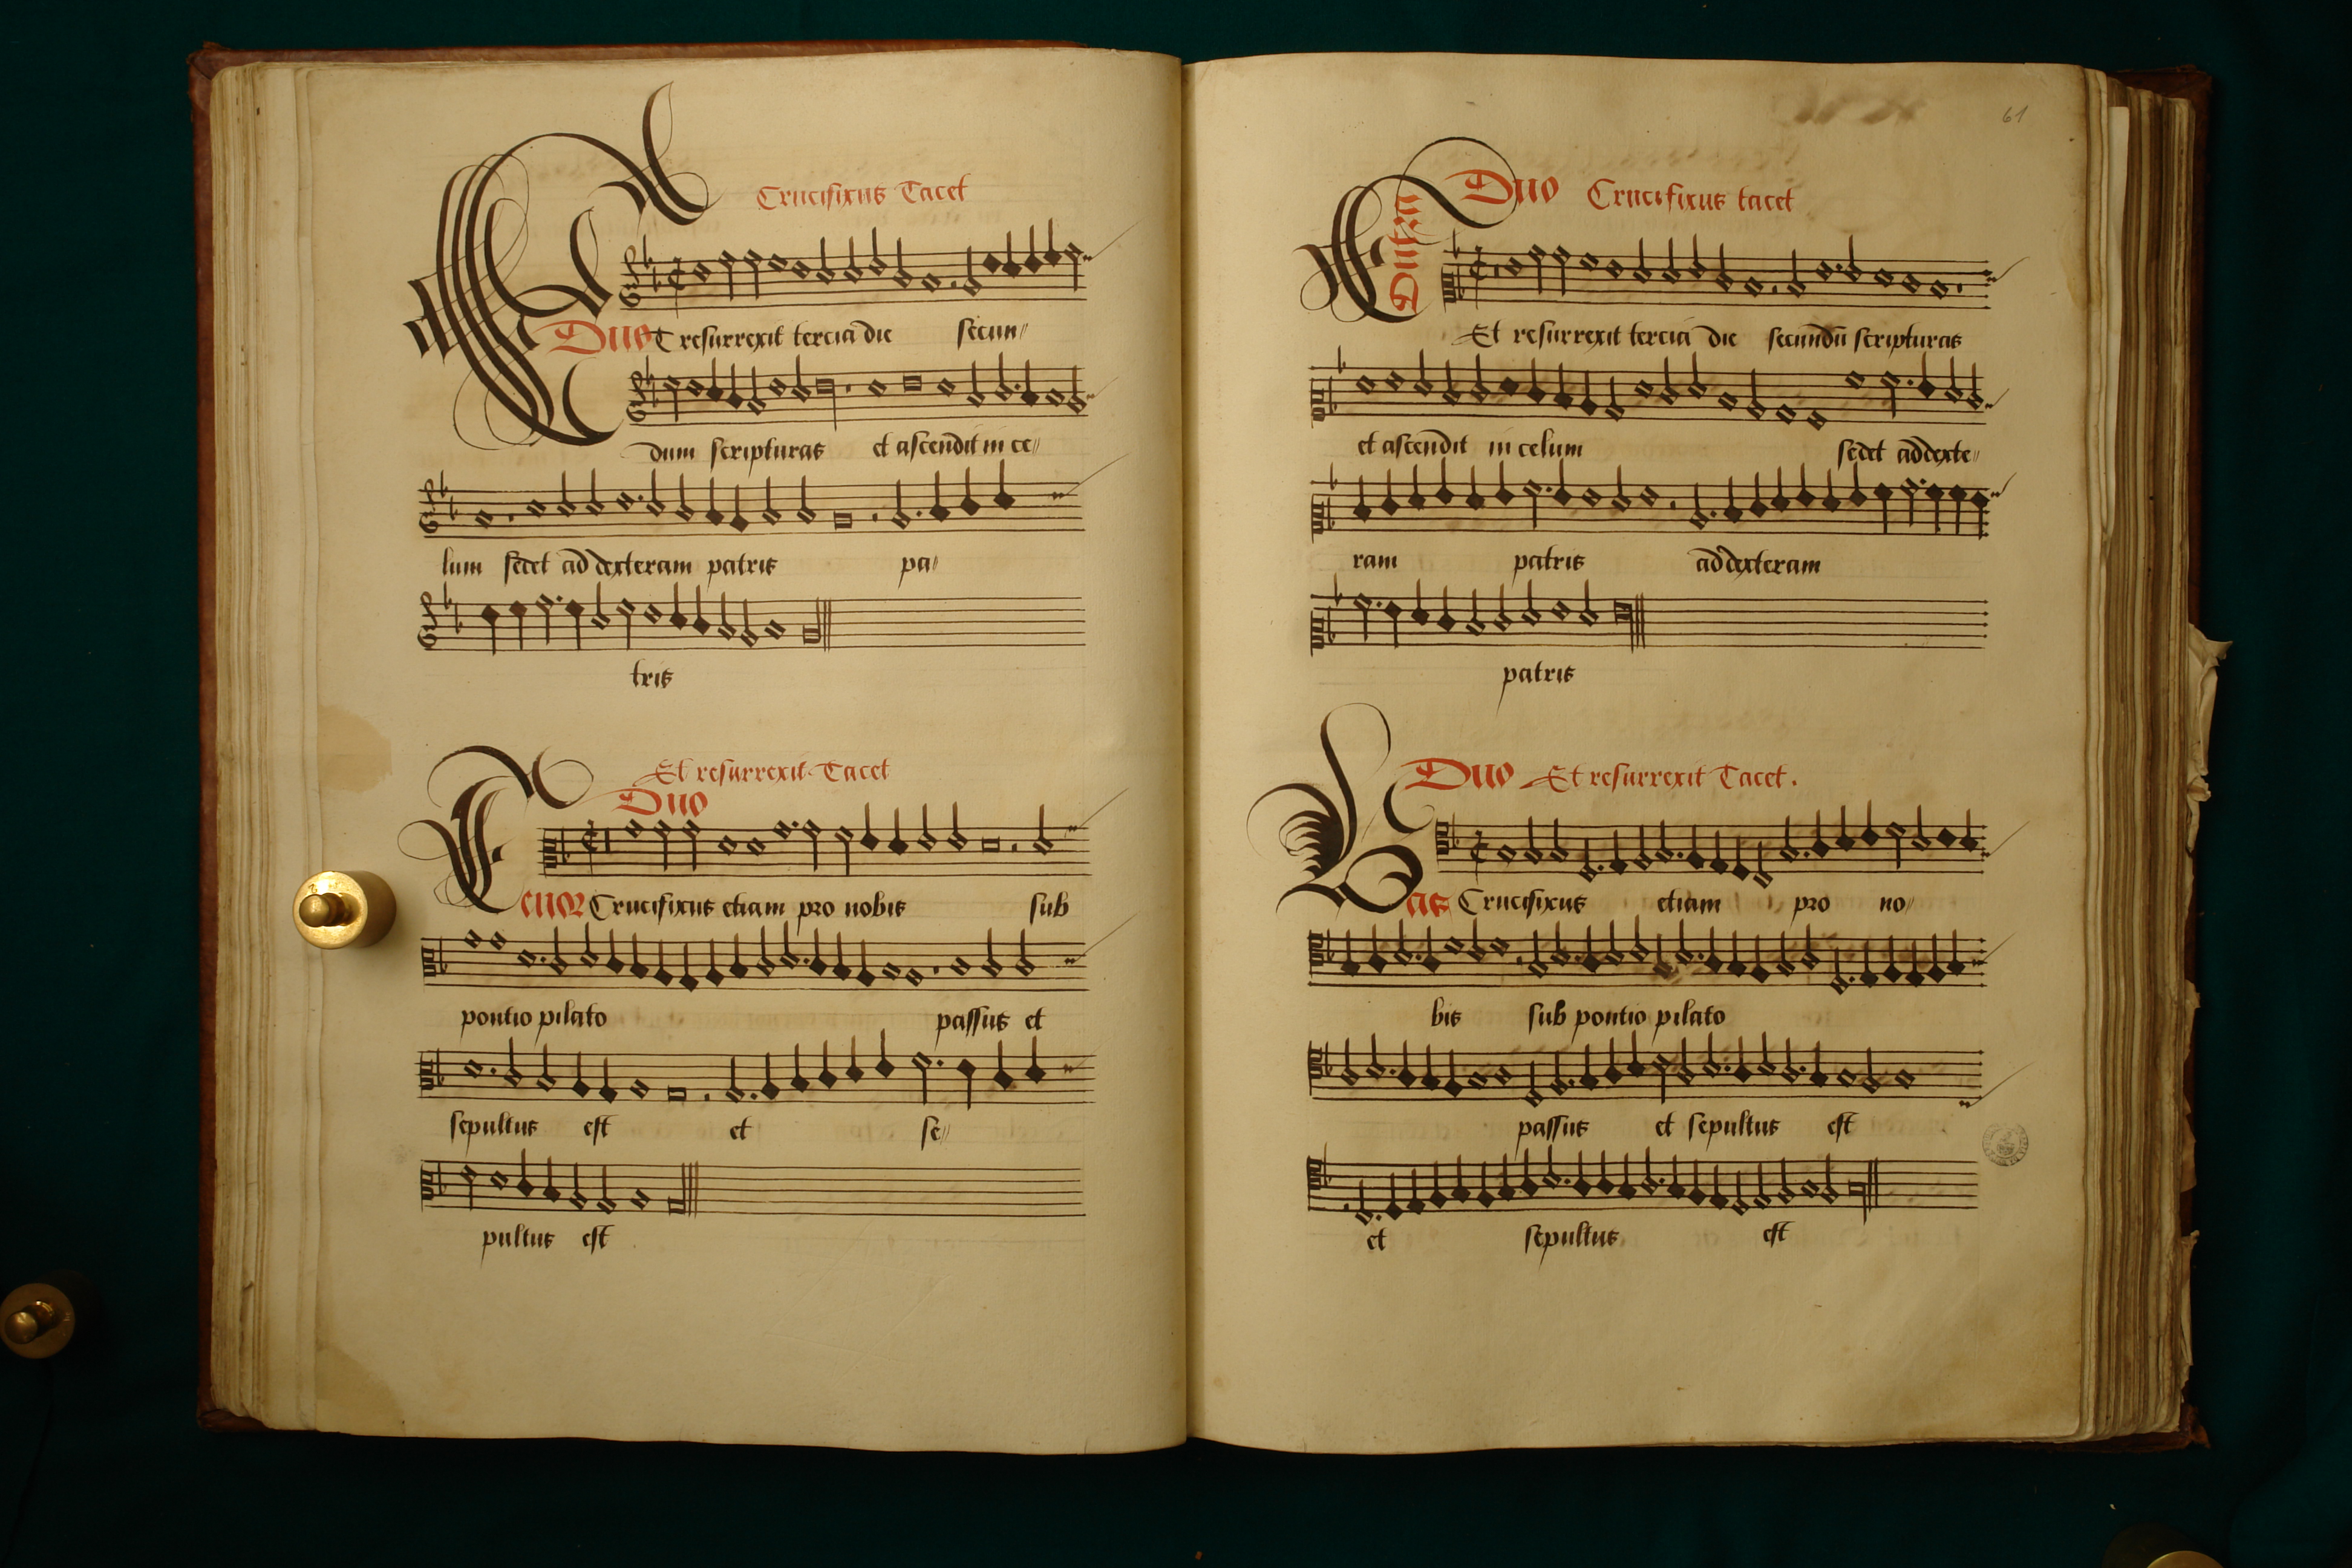 Crucifixus Tacet
Duo Et resurrexit tercia die secun//
dum scripturas et ascendit in ce//
lum sedet ad dexteram patris pa//
tris
Et resurrexit Tacet
Duo
Tenor Crucifixus etiam pro nobis sub
pontio pilato passus et
sepultus est et se//
pultus est
61
Duo Crucifixus tacet
Contra
Et resurrexit tercia die secundū scripturas
et ascendit in celum sedet ad dexte//
ram patris ad dexteram
patris
Duo Et resurrexit Tacet.
Bas Crucifixus etiam pro no//
bis sub pontio pilato
passus et sepultus est
et sepultus est